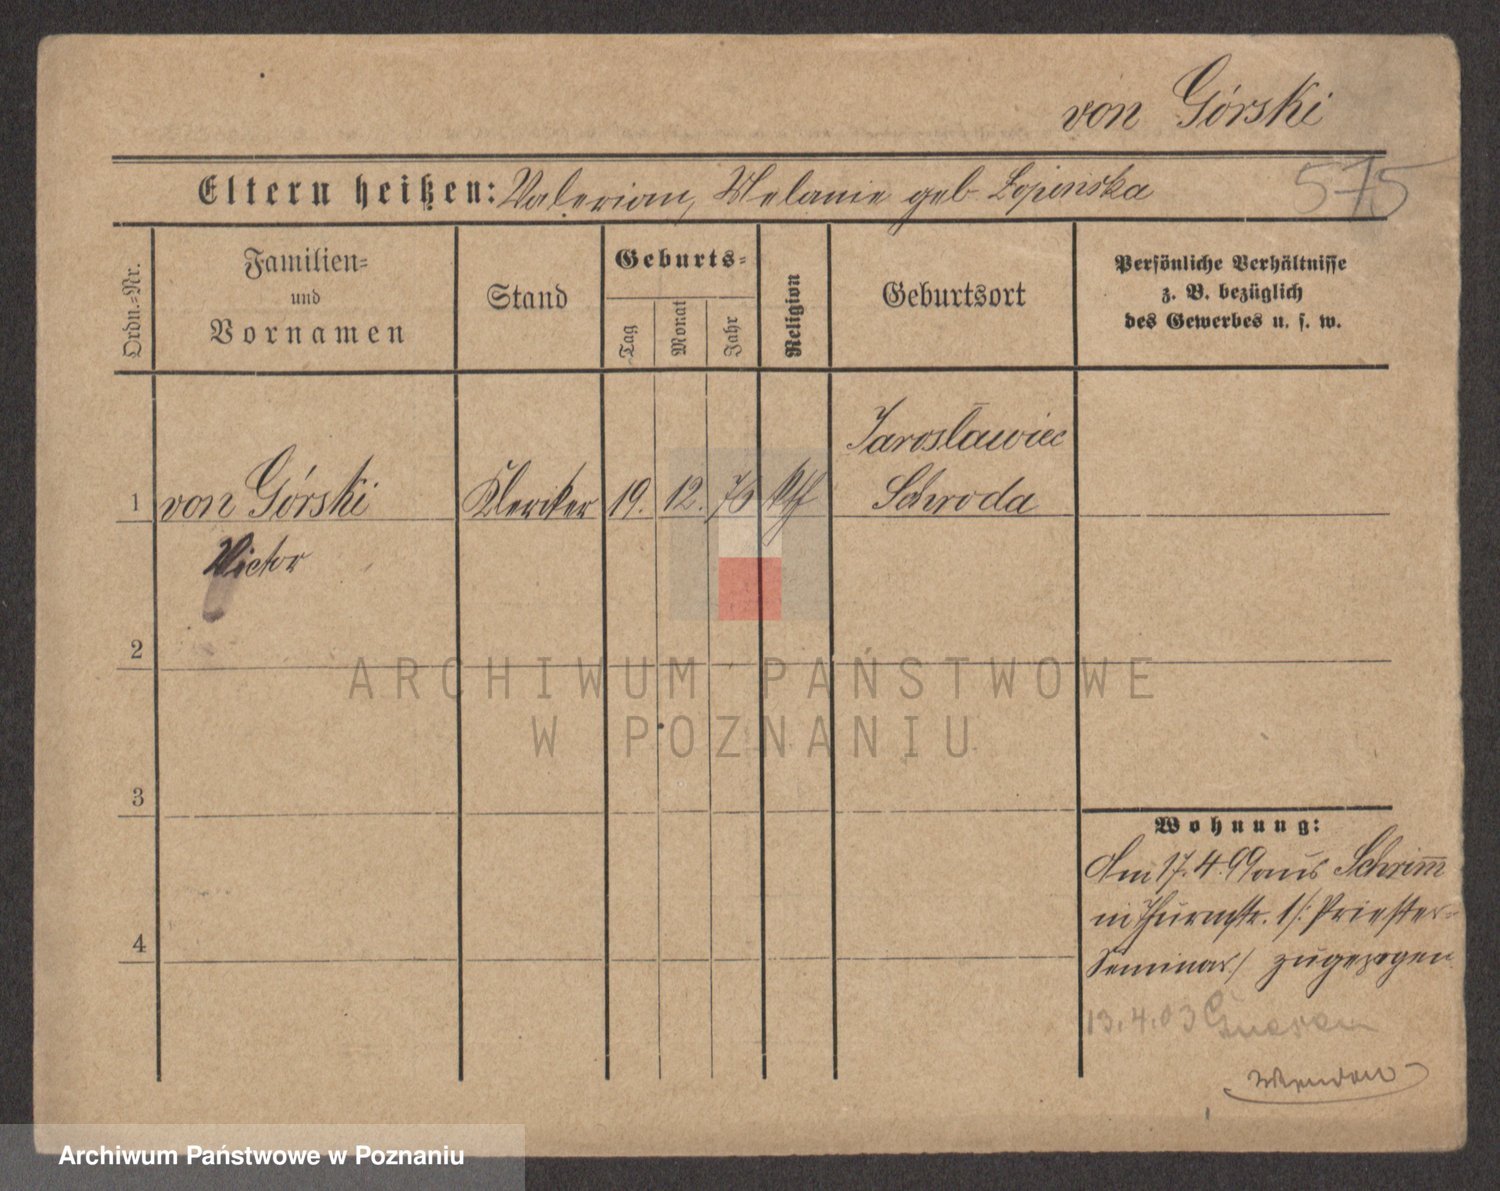 von Górski
575
Eltern heißen: Valerian, Melanie geb. Łopinska
Ordn.-Nr.
Familien-
und
Vornamen
Stand
Geburts-
Tag
Monat
Jahr
Religion
Geburtsort
Persönliche Verhältnisse
z. B. bezüglich
des Gewerbes u. s. w.
Jarosławiec
1 von Górski Kleriker 19. 12. 76 kth Schroda
Victor
2
3
4
Wohnung:
Am 17.4.99 aus Schrim̅
in Thurmstr. 1/: Priester-
Seminar/ zugezogen
13.4.03 Gnesen
ARCHIWUM PAŃSTWOWE
W POZNANIU
Archiwum Państwowe w Poznaniu